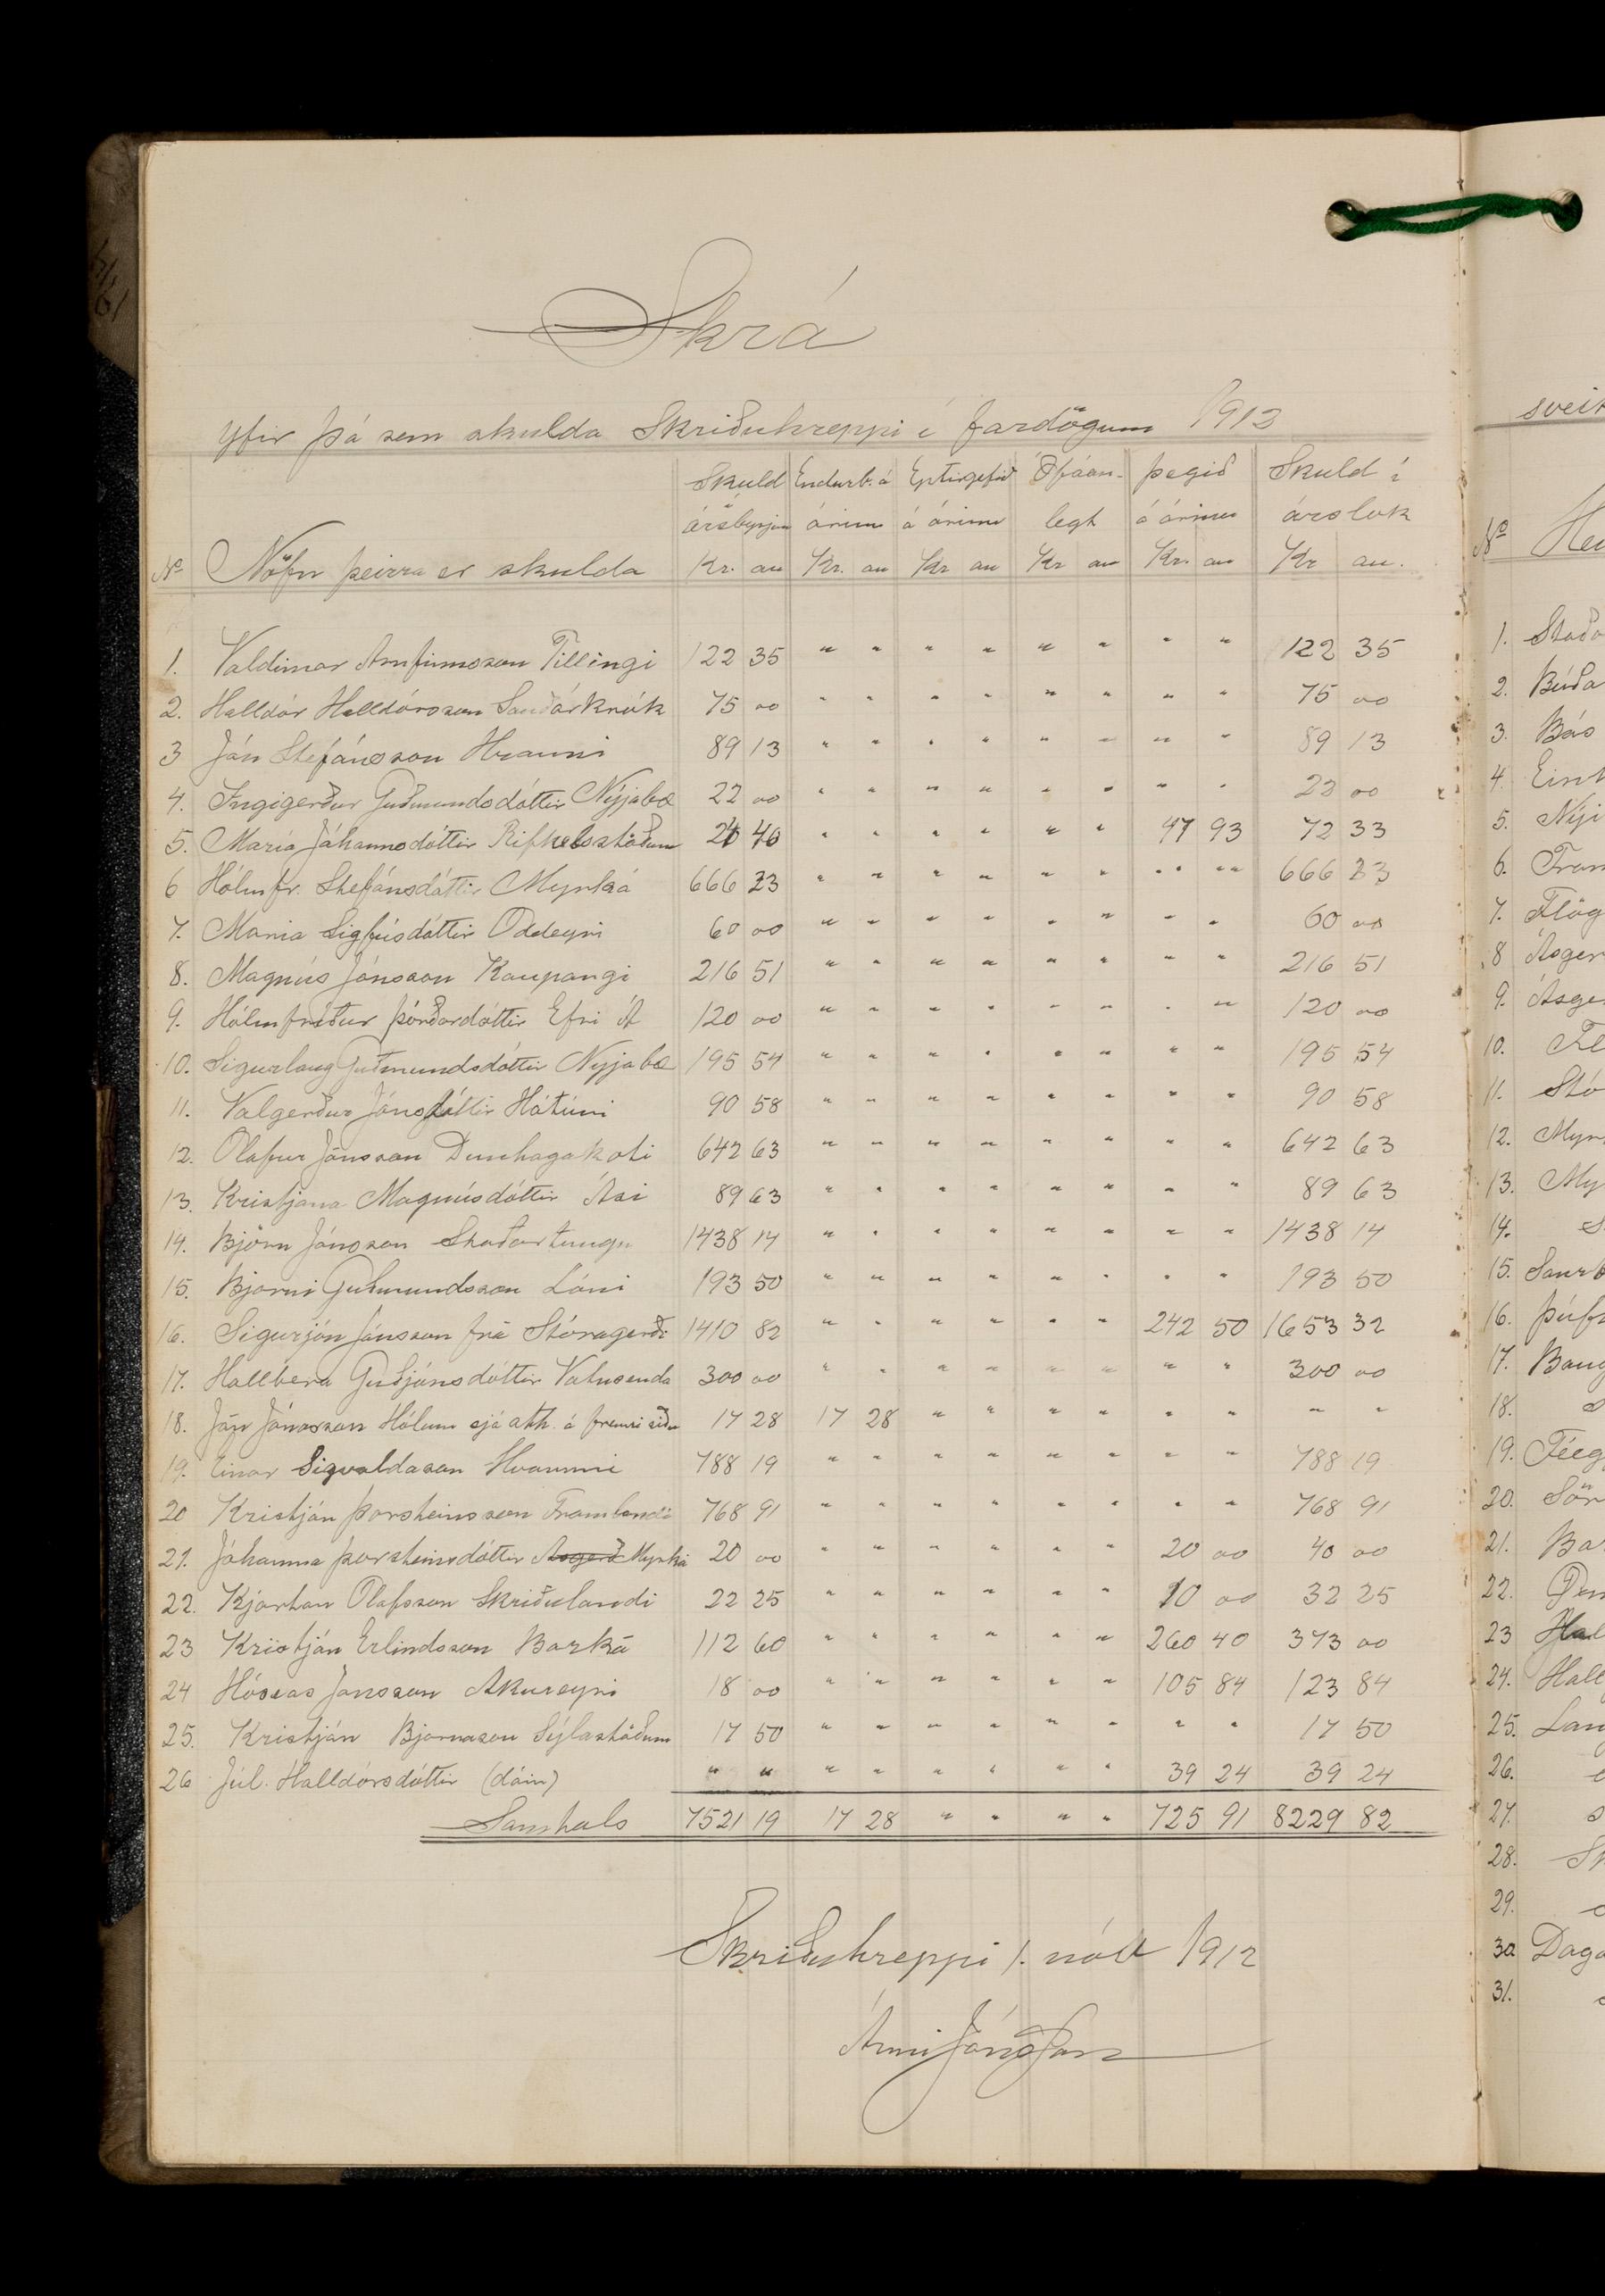 Skrá
yfir þá sem skulda Skriðuhreppi í fardögum 1912
Skuld Endurb. á Eptirgefið Ófáan- Þegið Skuld í
ársbyrjun árinu á árinu legt á árinu árslok
No Nöfn þeirra er skulda Kr. au Kr. au Kr au Kr au Kr. au Kr au.
1. Valdimar Arnfinnsson Tillingi 122 35 " " " " " " " " 122 35
2. Halldór Halldórsson Sauðárkrók 75 00 " " " " " " " " 75 00
3 Jón Stefánsson Hrauni 89 13 " " " " " " " " 89 13
4. Ingigerður Guðmundsdóttir Nýjabæ 22 00 " " " " " " " " 22 00
5. María Jóhannsdóttir Rifkelsstöðum 24 40 " " " " " " 47 93 72 33
6 Hólmfr. Stefánsdóttir Myrká 666 23 " " " " " " " " 666 23
7. Maria Sigfúsdóttir Oddeyri 60 00 " " " " " " " " 60 00
8. Magnús Jónsson Kaupangi 216 51 " " " " " " " " 216 51
9. Hólmfríður Þórðardóttir Efri Á 120 00 " " " " " " " " 120 00
10. Sigurlaug Guðmundsdóttir Nýjabæ 195 54 " " " " " " " " 195 54
11. Valgerður Jónsdóttir Hátúni 90 58 " " " " " " " " 90 58
12. Olafur Jónsson Dunhagakoti 642 63 " " " " " " " " 642 63
13. Kristjana Magnúsdóttir Ási 89 63 " " " " " " " " 89 63
14. Björn Jónsson Skaðartungu 1438 14 " " " " " " " " 1438 14
15. Bjarni Guðmundsson Lóni 193 50 " " " " " " " " 193 50
16. Sigurjón Jónsson frá Stóragerði 1410 82 " " " " " " 242 50 1653 32
17. Hallbera Guðjónsdóttir Vatnsenda 300 00 " " " " " " " " 300 00
18. Jón Jónasson Hólum sjá ath. á fremri síðu 17 28 17 28 " " " " " " " "
19. Einar Sigvaldason Hvammi 788 19 " " " " " " " " 788 19
20 Kristján Þorsteinsson Framlandi 768 91 " " " " " " " " 768 91
21. Jóhanna Þorsteinsdóttir Asgerð Myrká 20 00 " " " " " " 20 00 40 00
22. Kjartan Olafsson Skriðulandi 22 25 " " " " " " 10 00 32 25
23 Kristján Erlindsson Barká 112 60 " " " " " " 260 40 373 00
24 Hóseas Jónsson Akureyri 18 00 " " " " " " 105 84 123 84
25. Kristján Bjarnason Sýlastöðum 17 50 " " " " " " " " 17 50
26 Júl. Halldórsdóttir (dáin) " " " " " " " " 39 24 39 24
Samtals 7521 19 17 28 " " " " 725 91 8229 82
Skriðuhreppi 1. nóv 1912
Árni Jónsson
sveit
No
1. Staða
2. Búða
3. Bás
4. Einh
5. Nýi
6. Fram
7. Flög
8 Ásger
9. Ásge
10.
11. Stó
12. Myr
13. My
14.
15. Saurb
16. Þúfn
17. Baug
18.
19. Féeg
20. Sör
21. Bar
22.
23 Hal
24. Hall
25. Lan
26.
27.
28. Sk
29.
30 Daga
31.